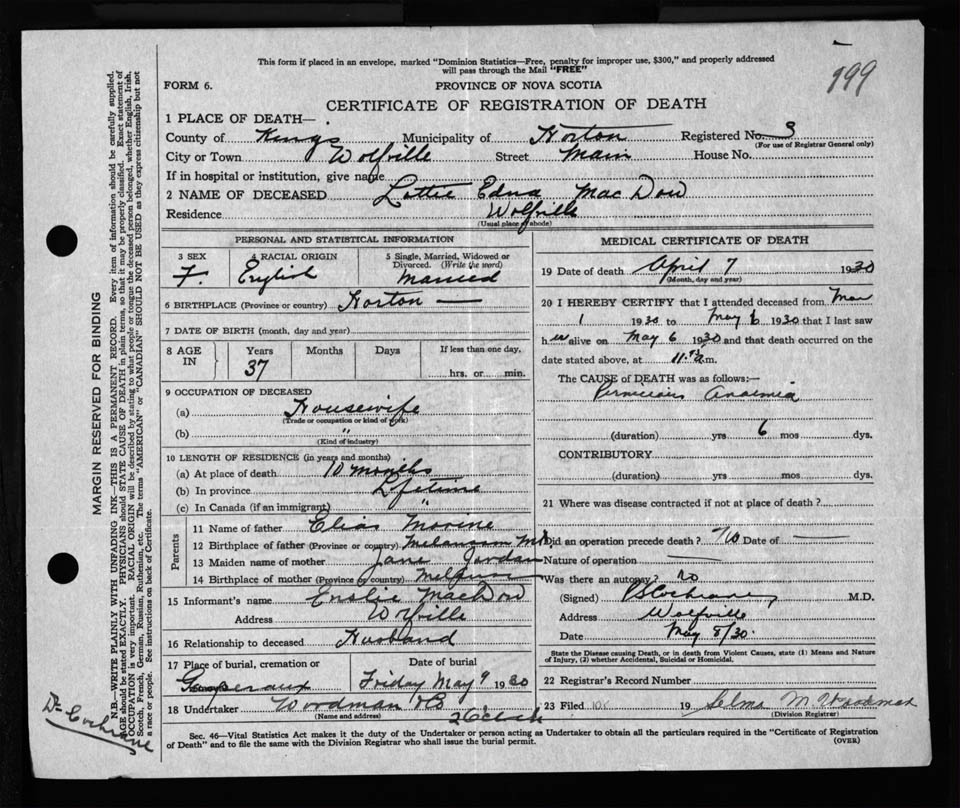 This form if placed in an envelope, marked "Dominion Statistics—Free, penalty for improper use, $300," and properly addressed
will pass through the Mail "FREE"
199
FORM 6.
PROVINCE OF NOVA SCOTIA
CERTIFICATE OF REGISTRATION OF DEATH
1 PLACE OF DEATH—
County of Kings Municipality of Horton Registered No. 3
(For use of Registrar General only)
City or Town Wolfville Street Main House No.
If in hospital or institution, give name
2 NAME OF DECEASED Lottie Edna MacDow
Residence Wolfville
(Usual place of abode)
PERSONAL AND STATISTICAL INFORMATION
3 SEX 4 RACIAL ORIGIN 5 Single, Married, Widowed or
Divorced. (Write the word)
F. English Married
6 BIRTHPLACE (Province or country) Horton —
7 DATE OF BIRTH (month, day and year)
8 AGE IN Years Months Days If less than one day,
37 hrs. or min.
9 OCCUPATION OF DECEASED
(a) Housewife
(Trade or occupation or kind of work)
(b) "
(Kind of industry)
10 LENGTH OF RESIDENCE (in years and months)
(a) At place of death 10 months
(b) In province Lifetime
(c) In Canada (if an immigrant) "
Parents
11 Name of father Elias Morine
12 Birthplace of father (Province or country) Melanson
13 Maiden name of mother Jane Jordan
14 Birthplace of mother (Province or country)
15 Informant's name MacDow
Address Wolfville
16 Relationship to deceased Husband
17 Place of burial, cremation or Date of burial
Gaspereaux Friday May 9 1930
18 Undertaker Woodman
(Name and address)
2 o'clock
MEDICAL CERTIFICATE OF DEATH
19 Date of death April 7 1930
(Month, day and year)
20 I HEREBY CERTIFY that I attended deceased from Mar
1 1930 to May 6 1930 that I last saw
her alive on May 6 1930 and that death occurred on the
date stated above, at 11 m.
The CAUSE of DEATH was as follows:—
Pernicious Anaemia
(duration) yrs 6 mos dys.
CONTRIBUTORY
(duration) yrs mos dys.
21 Where was disease contracted if not at place of death?
Did an operation precede death? No Date of —
Nature of operation —
Was there an autopsy? no
(Signed) Cochrane M.D.
Address Wolfville
Date May 8/30.
State the Disease causing Death, or in death from Violent Causes, state (1) Means and Nature
of Injury, (2) whether Accidental, Suicidal or Homicidal.
22 Registrar's Record Number
23 Filed 19 Selma M. Woodman
(Division Registrar)
Sec. 46—Vital Statistics Act makes it the duty of the Undertaker or person acting as Undertaker to obtain all the particulars required in the "Certificate of Registration
of Death" and to file the same with the Division Registrar who shall issue the burial permit.
(OVER)
MARGIN RESERVED FOR BINDING
N.B.—WRITE PLAINLY WITH UNFADING INK—THIS IS A PERMANENT RECORD. Every item of information should be carefully supplied.
AGE should be stated EXACTLY. PHYSICIANS should STATE CAUSE OF DEATH in plain terms, so that it may be properly classified. Exact statement of
OCCUPATION is very important. RACIAL ORIGIN will be described by stating to what people or tongue the deceased person belonged, whether English, Irish,
Scotch, French, German, Russian, Ruthenian, etc. The terms "AMERICAN" or "CANADIAN" SHOULD NOT BE USED as they express citizenship but not
a race or people. See instructions on back of Certificate.
Dr Cochrane